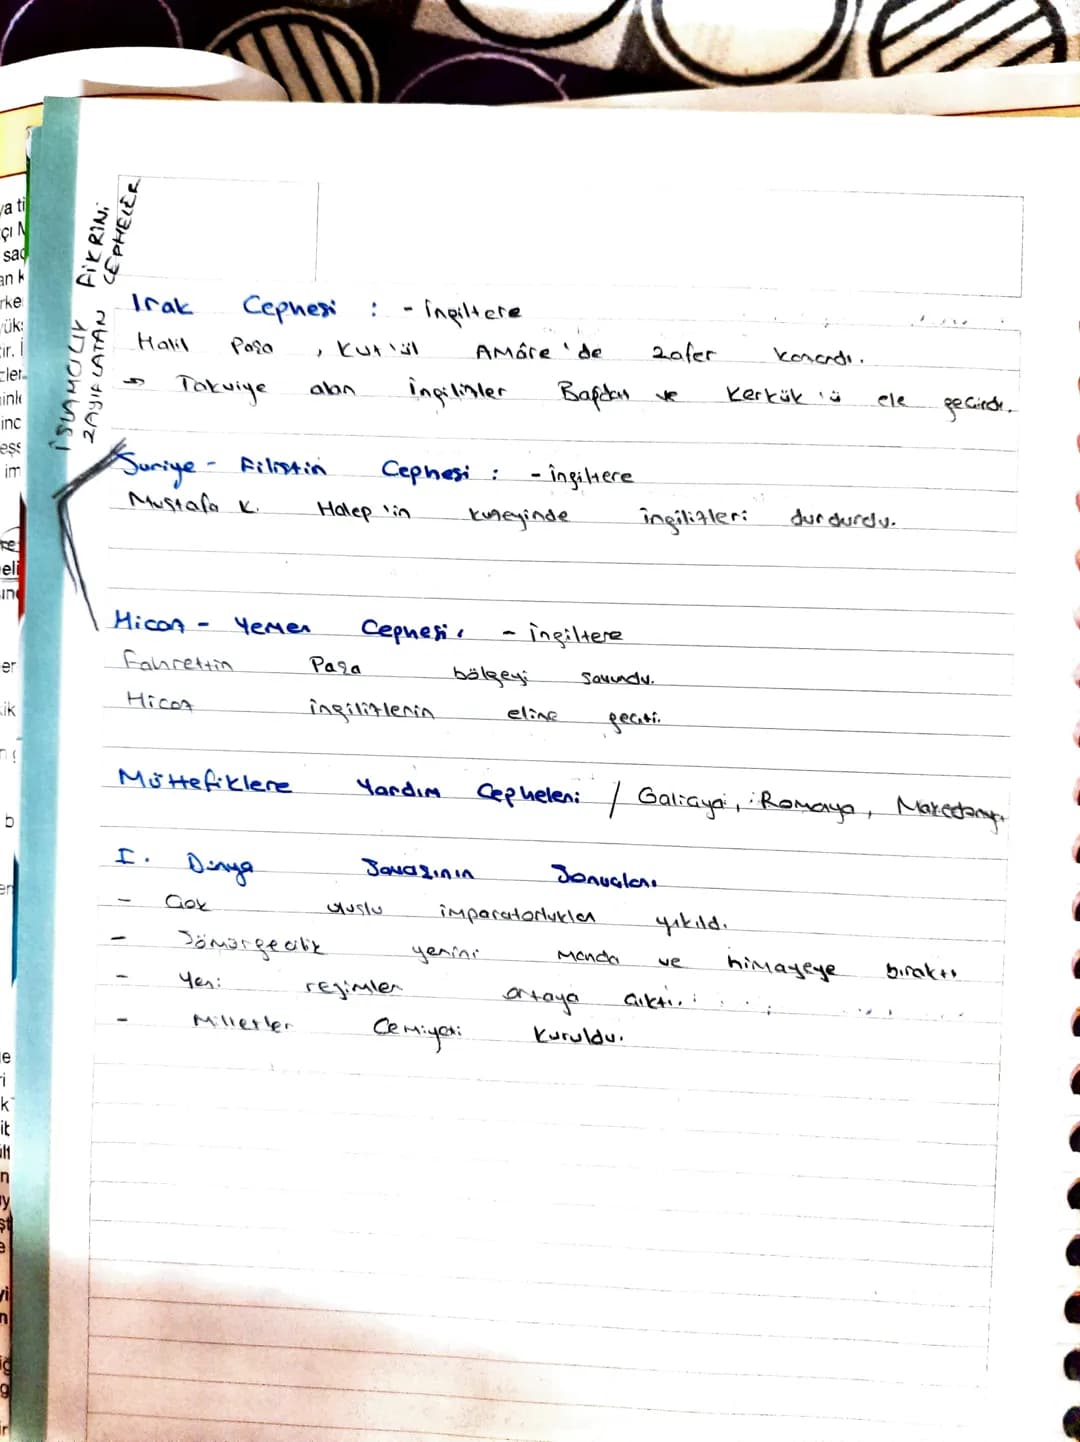 İSLAMCILIK FİKRİNİ
ZAYIFLATAN CEPHELER
Irak Cephesi : - İngiltere
Halil Paşa , Kut'ül Amâre'de zafer kazandı.
→ Takviye alan İngilizler Bağdat ve Kerkük'ü ele geçirdi.
Suriye - Filistin Cephesi : - İngiltere
Mustafa K. Halep'in kuzeyinde İngilizleri durdurdu.
Hicaz - Yemen Cephesi : - İngiltere
Fahrettin Paşa bölgeyi savundu.
Hicaz İngilizlerin eline geçti.
Müttefiklere Yardım Cepheleri / Galiçya, Romanya, Makedonya
I. Dünya Savaşının Sonuçları
- Çok uluslu imparatorluklar yıkıldı.
- Sömürgecilik yerini manda ve himayeye bıraktı
- Yeni rejimler ortaya çıktı.
- Milletler Cemiyeti kuruldu.